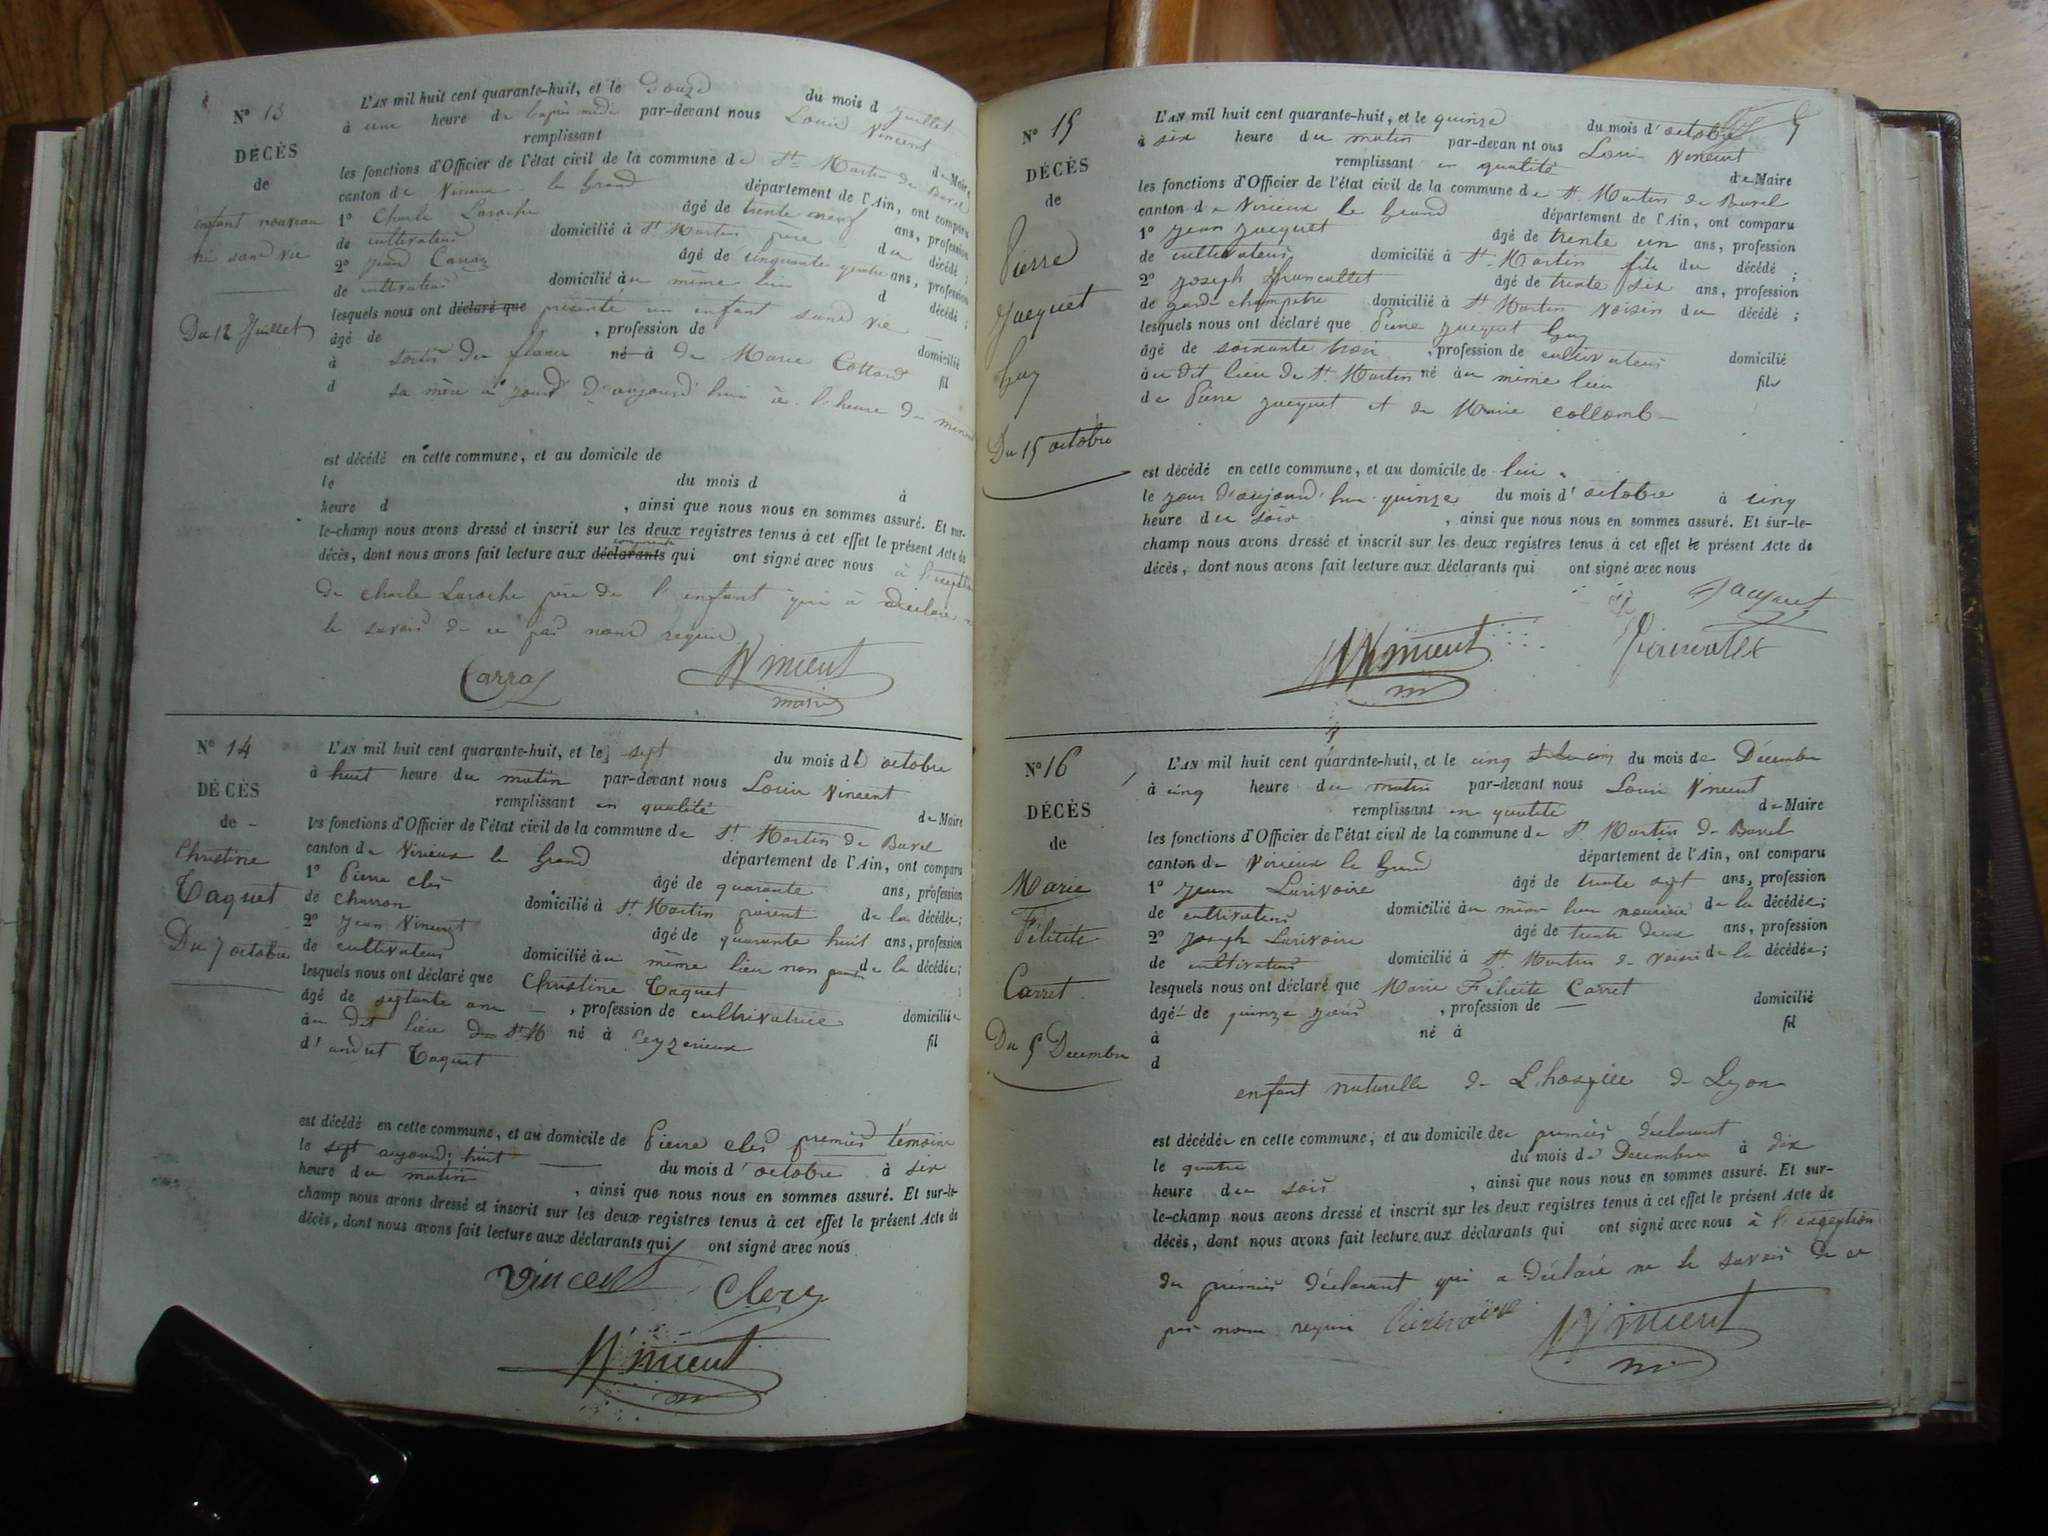 N° 13
DÉCÈS
de
enfant nouveau
né sans vie
Du 12 Juillet
L'AN mil huit cent quarante-huit, et le douze du mois d Juillet
à une heure de par-devant nous Louis Vincent
remplissant de Maire
les fonctions d'Officier de l'état civil de la commune de St Martin de Bavel
canton de Virieux le Grand département de l'Ain, ont comparu
1° Charle Laroche âgé de trente neuf ans, profession
de cultivateur domicilié à St Martin père du décédé ;
2° Jean Carraz âgé de cinquante quatre ans, profession
de cultivateur domicilié au même lieu d décédé ;
lesquels nous ont déclaré que présenté un enfant sans vie
âgé de , profession de domicilié
à sortis du flanc né à de Marie Cottard fil
d sa mère à jourd d'aujourd'hui à l'heure de
est décédé en cette commune, et au domicile de
le du mois d à
heure d , ainsi que nous nous en sommes assuré. Et sur-
le-champ nous avons dressé et inscrit sur les deux registres tenus à cet effet le présent Acte de
décès, dont nous avons fait lecture aux déclarants qui ont signé avec nous à l'exception
de charle Laroche père de l'enfant qui à déclaré ne
le savoir de ce pas nous requis
Carraz Vincent
maire
N° 14
DÉCÈS
de
Christine
Taquet
Du 7 octobre
L'AN mil huit cent quarante-huit, et le sept du mois d octobre
à huit heure du matin par-devant nous Louis Vincent
remplissant en qualité de Maire
les fonctions d'Officier de l'état civil de la commune de St Martin de Bavel
canton de Virieux le Grand département de l'Ain, ont comparu
1° Pierre clés âgé de quarante ans, profession
de charron domicilié à St Martin parent de la décédée ;
2° Jean Vincent âgé de quarante huit ans, profession
de cultivateur domicilié au même lieu non parent de la décédée ;
lesquels nous ont déclaré que Christine Taquet
âgé de septante ans , profession de cultivatrice domiciliée
au dit lieu de St M né à Ceyzerieux fil
d'andret Taquet
est décédé en cette commune, et au domicile de Pierre clés premier témoins
le sept aujourd huit du mois d'octobre à six
heure du matin , ainsi que nous nous en sommes assuré. Et sur-le-
champ nous avons dressé et inscrit sur les deux registres tenus à cet effet le présent Acte de
décès, dont nous avons fait lecture aux déclarants qui ont signé avec nous
Vincent Clerz
Vincent
N° 15
DÉCÈS
de
Pierre
Jacquet
Guy
Du 15 octobre
L'AN mil huit cent quarante-huit, et le quinze du mois d'octobre
à six heure du matin par-devan nt ous Louis Vincent
remplissant en qualité de Maire
les fonctions d'Officier de l'état civil de la commune de St Martin de Bavel
canton de Virieux le Grand département de l'Ain, ont comparu
1° Jean Jacquet âgé de trente un ans, profession
de cultivateur domicilié à St Martin fils du décédé ;
2° Joseph âgé de trente six ans, profession
de garde champêtre domicilié à St Martin Voisin du décédé ;
lesquels nous ont déclaré que Pierre Jacquet Guy
âgé de soixante trois , profession de cultivateur domicilié
au dit lieu de St Martin né au même lieu fils
de Pierre Jacquet et de Marie Collomb
est décédé en cette commune, et au domicile de lui
le jour d'aujourd'hui quinze du mois d'octobre à cinq
heure du soir , ainsi que nous nous en sommes assuré. Et sur-le-
champ nous avons dressé et inscrit sur les deux registres tenus à cet effet le présent Acte de
décès, dont nous avons fait lecture aux déclarants qui ont signé avec nous
Jacquet
Vincent
N° 16
DÉCÈS
de
Marie
Félicite
Carret
Du 5 Decembre
L'AN mil huit cent quarante-huit, et le cinq du mois de Décembre
à cinq heure du matin par-devant nous Louis Vincent
remplissant en qualité de Maire
les fonctions d'Officier de l'état civil de la commune de St Martin de Bavel
canton de Virieux le Grand département de l'Ain, ont comparu
1° Jean Larivoire âgé de trente sept ans, profession
de cultivateur domicilié au même lieu nourricié de la décédée ;
2° Joseph Larivoire âgé de trente deux ans, profession
de cultivateur domicilié à St Martin de voisin de la décédée ;
lesquels nous ont déclaré que Marie Félicite Carret
âgé de quinze jours , profession de domicilié
à né à fil
d
enfant naturelle de L'hospice de Lyon
est décédée en cette commune, et au domicile de premier déclarant
le quatre du mois de Decembre à dix
heure du soir , ainsi que nous nous en sommes assuré. Et sur-
le-champ nous avons dressé et inscrit sur les deux registres tenus à cet effet le présent Acte de
décès, dont nous avons fait lecture aux déclarants qui ont signé avec nous à l'exception
du premier déclarant qui a déclaré ne le savoir de ce
pas nous requis Vincent